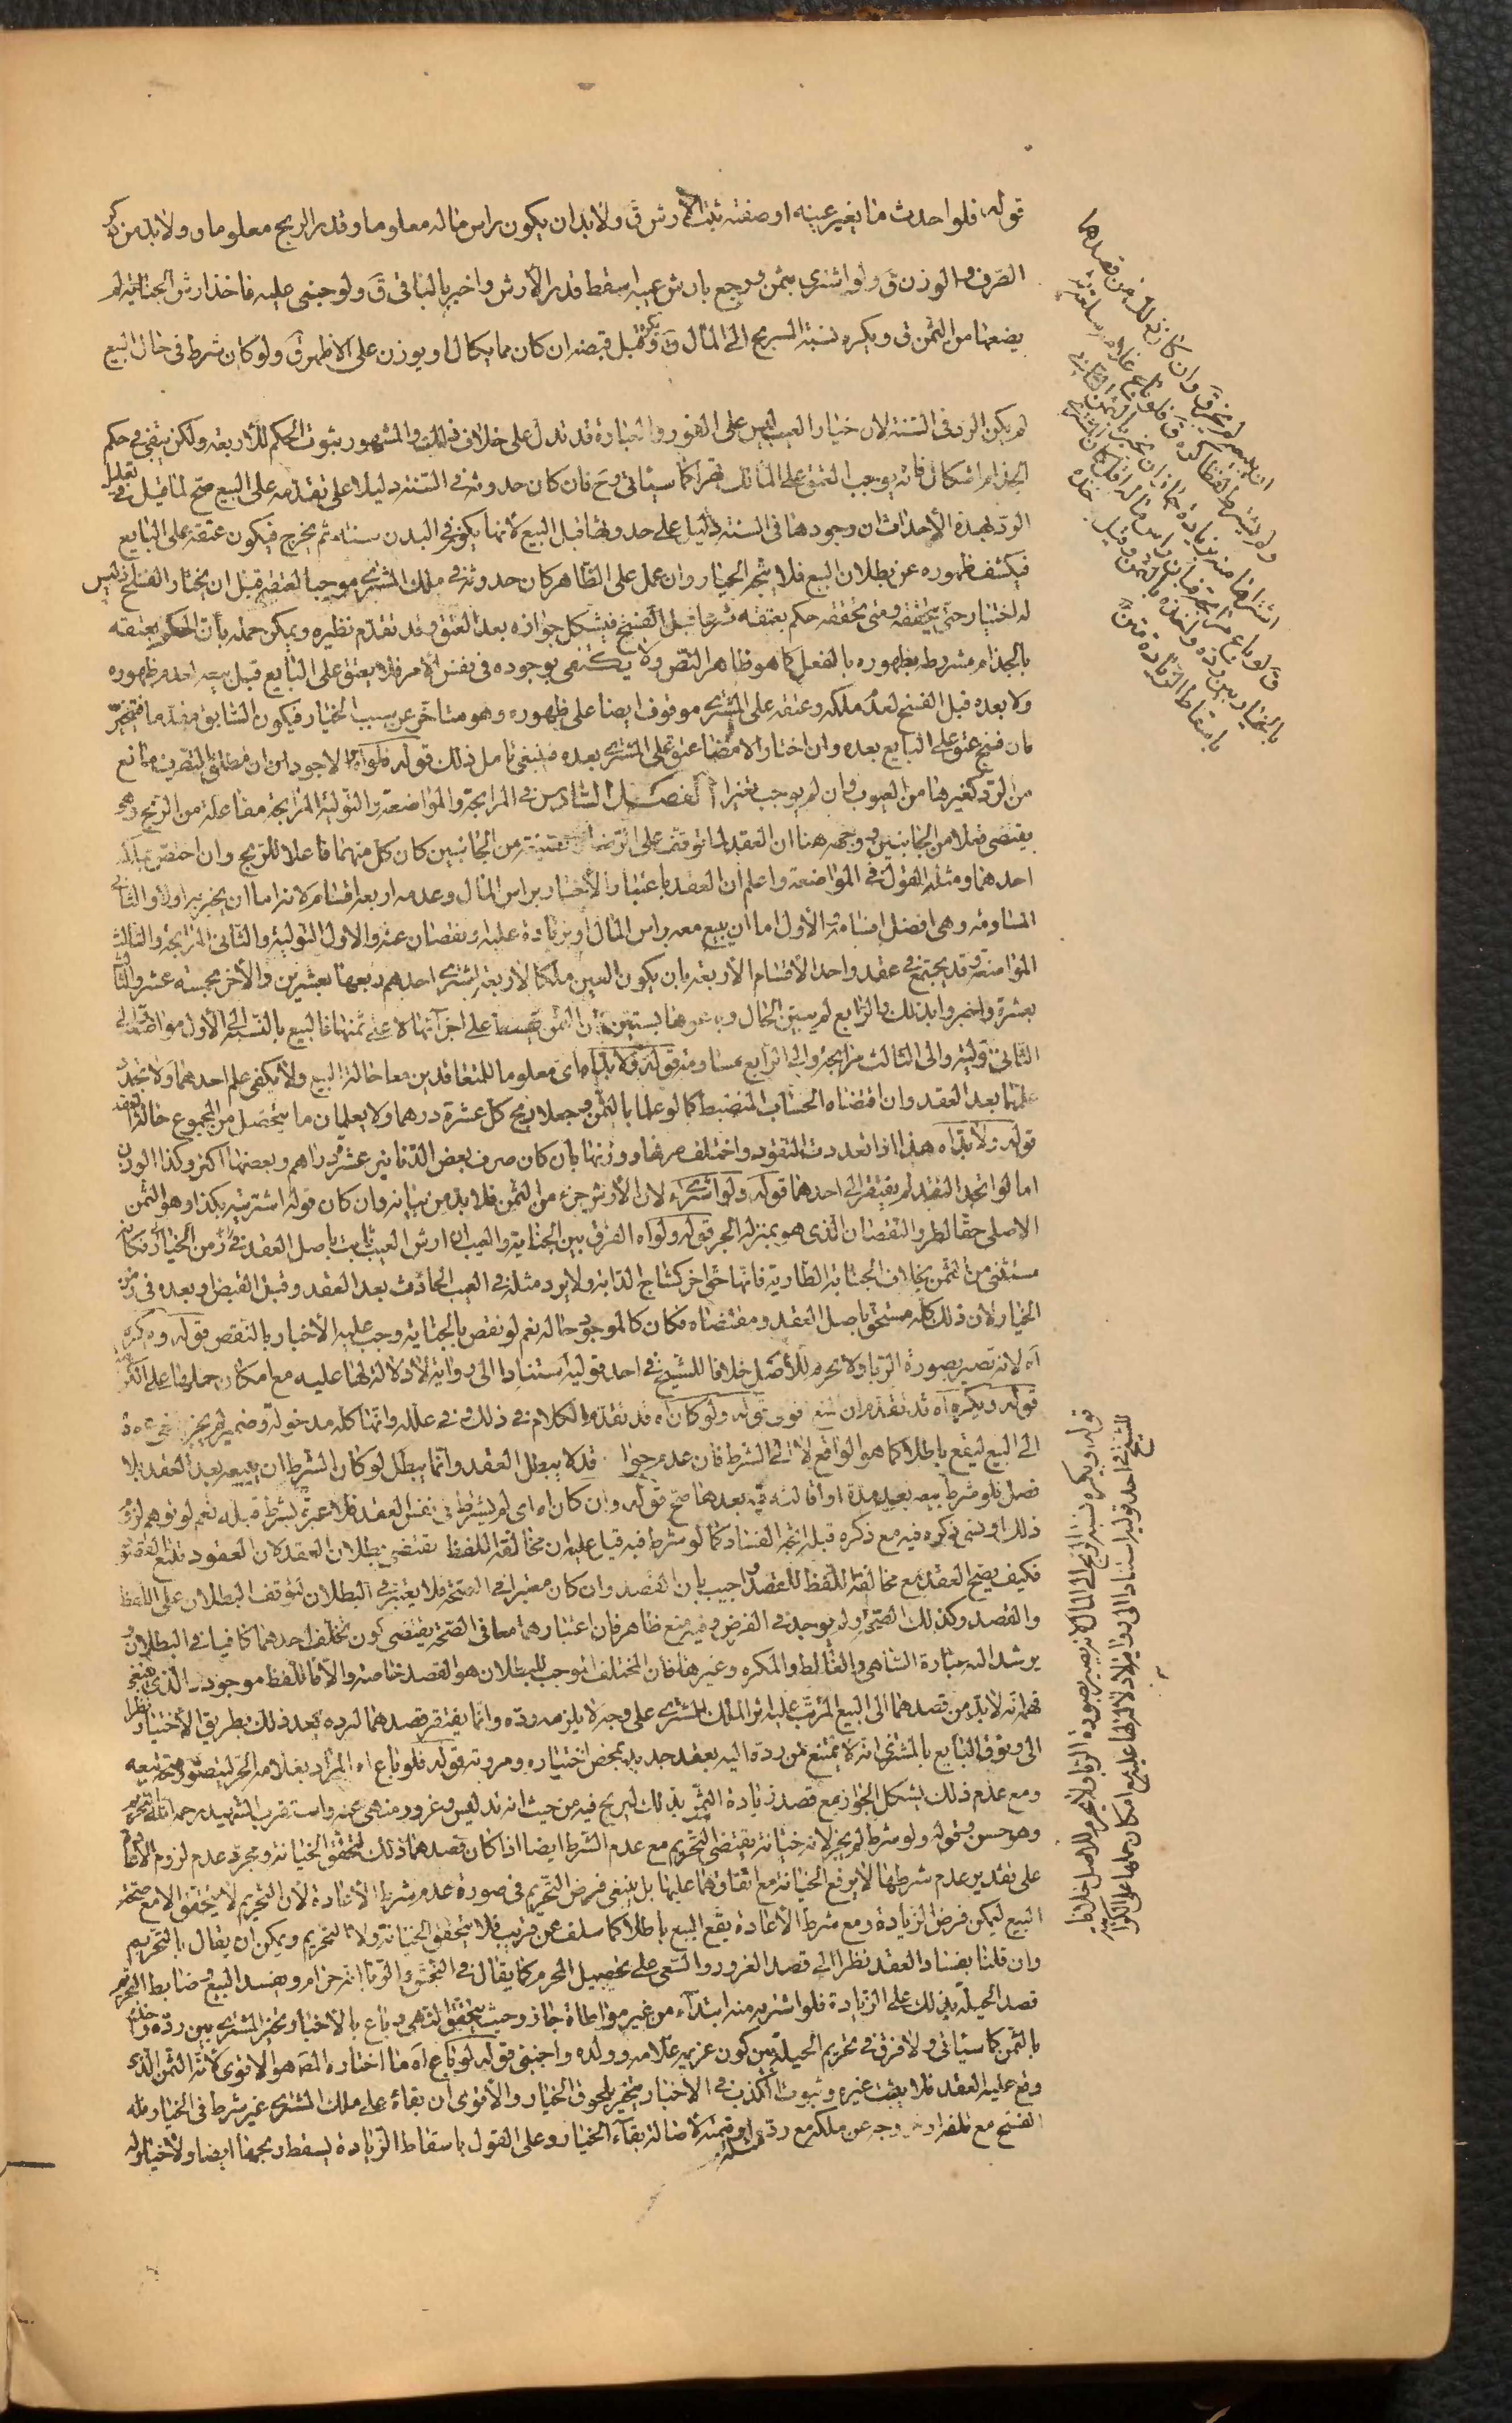 قوله فلو احدث ما يغير عينه او صفته ثبت الأرش ق ولا بد ان يكون راس ماله معلوما و قدر الربح معلوما و لا بد من ذكر
الصرف و الوزن ق ولو اشترى بثمن و رجع بارش عيبه اسقط قدر الأرش و اخبر بالباقي ق ولو جنى عليه فاخذ ارش الجناية لم
يضعها من الثمن ق و يكره نسبة الربح الى المال ق و قبل قبضه ان كان مما يكال او يوزن على الاظهر ق ولو كان شرط في حال البيع
لم يكن الرد في السنة لان خيار العيب ليس على الفور و العبارة قد تدل على خلاف ذلك و المشهور ثبوت الحكم للأربعة ولكن يبقى في حكم
الجذام اشكال فانه يوجب العتق على المالك قهرا كما سيأتي و ح فان كان حدوثه في السنة دليلا على تقدمه على البيع صح لما قيل في تعليل
الرد بهذه الأحداث ان وجودها في السنة دليل على حدوثها قبل البيع لأنها يكمن في البدن سنة ثم يخرج فيكون عتقه على البايع
فيكشف ظهوره عن بطلان البيع فلا يتجه الخيار وان عمل على الظاهر كان حدوثه في ملك المشتري موجبا لعتقه قبل ان يختار الفسخ اذ ليس
له اختيار حتى يتحققه ومتى تحققه حكم بعتقه شرعا قبل الفسخ فيشكل جوازه بعد العتق وقد تقدم نظيره ويمكن حله بأن الحكم بعتقه
بالجذام مشروط بظهوره بالفعل كما هو ظاهر النص ولا يكتفى بوجوده في نفس الامر فلا يعتق على البايع قبل بيعه لعدم ظهوره
ولا بعده قبل الفسخ لعدم ملكه وعتقه على المشتري موقوف ايضا على ظهوره وهو متأخر عن سبب الخيار فيكون السابق مقدما فيتخير
فان فسخ عتق على البايع بعده وان اختار الامضاء عتق على المشتري بعده فينبغي تأمل ذلك قوله فلو اه الاجود ان مطلق التصرف مانع
من الرد كغيرها من العيوب وان لم يوجب تغيرا الفصل السادس في المرابحة والمواضعة والتولية المرابحة مفاعلة من الربح وهي
يقتضي فعلا من الجانبين ووجهه هنا ان العقد لما توقف على الرضا من الجانبين كان كل منهما فاعلا للربح وان اختص بملكه
احدهما ومثله القول في المواضعة واعلم ان العقد باعتبار الأخبار براس المال وعدمه اربعة اقسام لانه اما ان يخبر به اولا والثاني
المساومة وهي افضل اقسامه والأول اما ان يبيع معه براس المال او بزيادة عليه و نقصان عنه والاول التولية والثاني المرابحة والثالث
المواضعة وقد يجتمع في عقد واحد الأقسام الأربعة بان يكون العين ملكا لأربعة اشترى احدهم ربعها بعشرين والآخر بخمسة عشر والثالث
بعشرة واخبروا بذلك والرابع لم يبين الحال وباعوها بستين فان الثمن يقسط على اجزائها لا على ثمنها فالبيع بالنسبة الى الأول مواضعة والى
الثاني تولية والى الثالث مرابحة والى الرابع مساومة قوله ولا بد اه اي معلوما للمتعاقدين معا حالة البيع ولا يكفي علم احدهما ولا تجدد
علمهما بعد العقد وان اقتضاه الحساب المنضبط كما لو علما بالثمن وجعلا ربح كل عشرة درهما ولا يعلمان ما يتحصل من المجموع حالة العقد
قوله ولا بد اه هذا اذا تعددت النقود واختلف صرفها ووزنها بأن كان صرف بعض الدنانير عشرة دراهم وبعضها اكثر وكذا الوزن
اما لو اتحد النقد لم يفتقر الى احدهما قوله ولو اشترى اه لان الأرش جزء من الثمن فلا بد من بيانه وان كان قوله اشتريته بكذا وهو الثمن
الاصلي حقا لطرو النقصان الذي هو بمنزلة الجزء قوله ولو اه الفرق بين الجناية والعيب ان ارش العيب ثابت باصل العقد في زمن الخيار فكانه
مستثنى من الثمن بخلاف الجناية الطارية فانها حق اخر كنتاج الدابة ولا يرد مثله في العيب الحادث بعد العقد وقبل القبض او بعده في زمن
الخيار لان ذلك كله مستحق باصل العقد ومقتضاه فكان كالموجود حاله نعم لو نقص بالجناية وجب عليه الأخبار بالنقص قوله ويكره
اه لانه تصير بصورة الربا ولا يحرم للأصل خلافا للشيخ في احد قوليه استنادا الى رواية لا دلالة لها عليه مع امكان حملها على الكراهة
قوله ويكره اه قد تقدم قوله ولو كان اه قد تقدم الكلام في ذلك في علله وانما كله مدخولة وضمير لم يجز
الى البيع ليقع باطلا كما هو الواقع لا الى الشرط فان عدم جوازه قد لا يبطل العقد وانما يبطل لو كان الشرط ان يبيعه بعد العقد بلا
فصل فلو شرط بيعه بعد مدة او اقالته فيه بعدها صح قوله وان كان اه اي لم يشترط في نفس العقد فلا عبرة بشرط قبله نعم لو توهم لزوم
ذلك او نسي ذكره فيه مع ذكره قبله اتجه الفساد كما لو شرط فيه قيل عليه ان مخالفة اللفظ تقتضي بطلان العقد لان العقود تتبع القصود
فكيف يصح العقد مع مخالفة اللفظ للقصد واجيب بان القصد وان كان معتبرا في الصحة فلا يعتبر في البطلان لتوقف البطلان على اللفظ
والقصد وكذلك الصحة ولم يوجد في الفرض وفيه منع ظاهر فان اعتبارهما معا في الصحة يقتضي كون تخلف احدهما كافيا في البطلان و
يرشد اليه عبارة الساهي والغالط والمكره وغيرها فان المختلف الموجب للبطلان هو القصد خاصة والا فاللفظ موجود والذي ينبغي
فهمه انه لا بد من قصدهما الى البيع المرتب عليه اثر الملك للمشتري على وجه لا يلزمه رده وانما يفتقر قصدهما لرده بعد ذلك بطريق الأختيار نظرا
الى وثوق البايع بالمشتري انه لا يمتنع من رده اليه بعقد جديد بمحض اختياره ومروته قوله فلو باع اه المراد بغلامه الحر ليتصور صحة بيعه
ومع عدم ذلك يشكل الجواز مع قصد زيادة الثمن بذلك ليربح فيه من حيث انه تدليس وغرور منهي عنه واستقرب الشهيد رحمه الله التحريم
وهو حسن وقوله ولو شرط لم يجز لانه خيانة يقتضي التحريم مع عدم الشرط ايضا اذا كان قصدهما ذلك لتحقق الخيانة ومجرد عدم لزوم الاقامة
على تقدير عدم شرطها لا يرفع الخيانة مع اتفاقهما عليها بل ينبغي فرض التحريم في صورة عدم شرط الأعادة لأن التحريم لا يتحقق الا مع صحة
البيع ليمكن فرض الزيادة ومع شرط الأعادة يقع البيع باطلا كما سلف عن قريب فلا يتحقق الخيانة ولا التحريم ويمكن ان يقال بالتحريم
وان قلنا بفساد العقد نظرا الى قصد الغرور والسعي على تحصيل المحرم كما يقال في النجش والربا انه حرام ويفسد البيع وضابط التحريم
قصد الحيلة بذلك على الزيادة فلو اشتريه منه ابتداء من غير مواطاة جاز وحيث يتحقق النهي وباع بالأخبار تخير المشتري بين رده واخذه
بالثمن كما سيأتي ولا فرق في تحريم الحيلة بين كون غريمه غلامه وولده واجنبي قوله لو باع اه ما اختاره المصـ هو الاقوى لأنه الثمن الذي
وقع عليه العقد فلا يثبت غيره وثبوت الكذب في الأخبار ينجبر بلحوق الخيار والأقوى ان بقاءه على ملك المشتري غير شرط في الخيار فله
الفسخ مع تلفه او خروجه عن ملكه مع رد مثله او قيمته لأصالة بقاء الخيار وعلى القول باسقاط الزيادة يسقط ربحها ايضا ولا خيار له
لم يجز ق وان كان ذلك من قصدهما
ق لو باع مرابحة فبان راس ماله اقل كان المشتري
بالخيار بين رده واخذه بالثمن وقيل ياخذه
باسقاط الزيادة متن
قوله ويكره نسبة الربح الى المال لانه يصير بصورة الربا ولا يحرم للاصل خلافا
للشيخ في احد قوليه استنادا الى رواية لا دلالة لها عليه مع امكان حملها على الكراهة